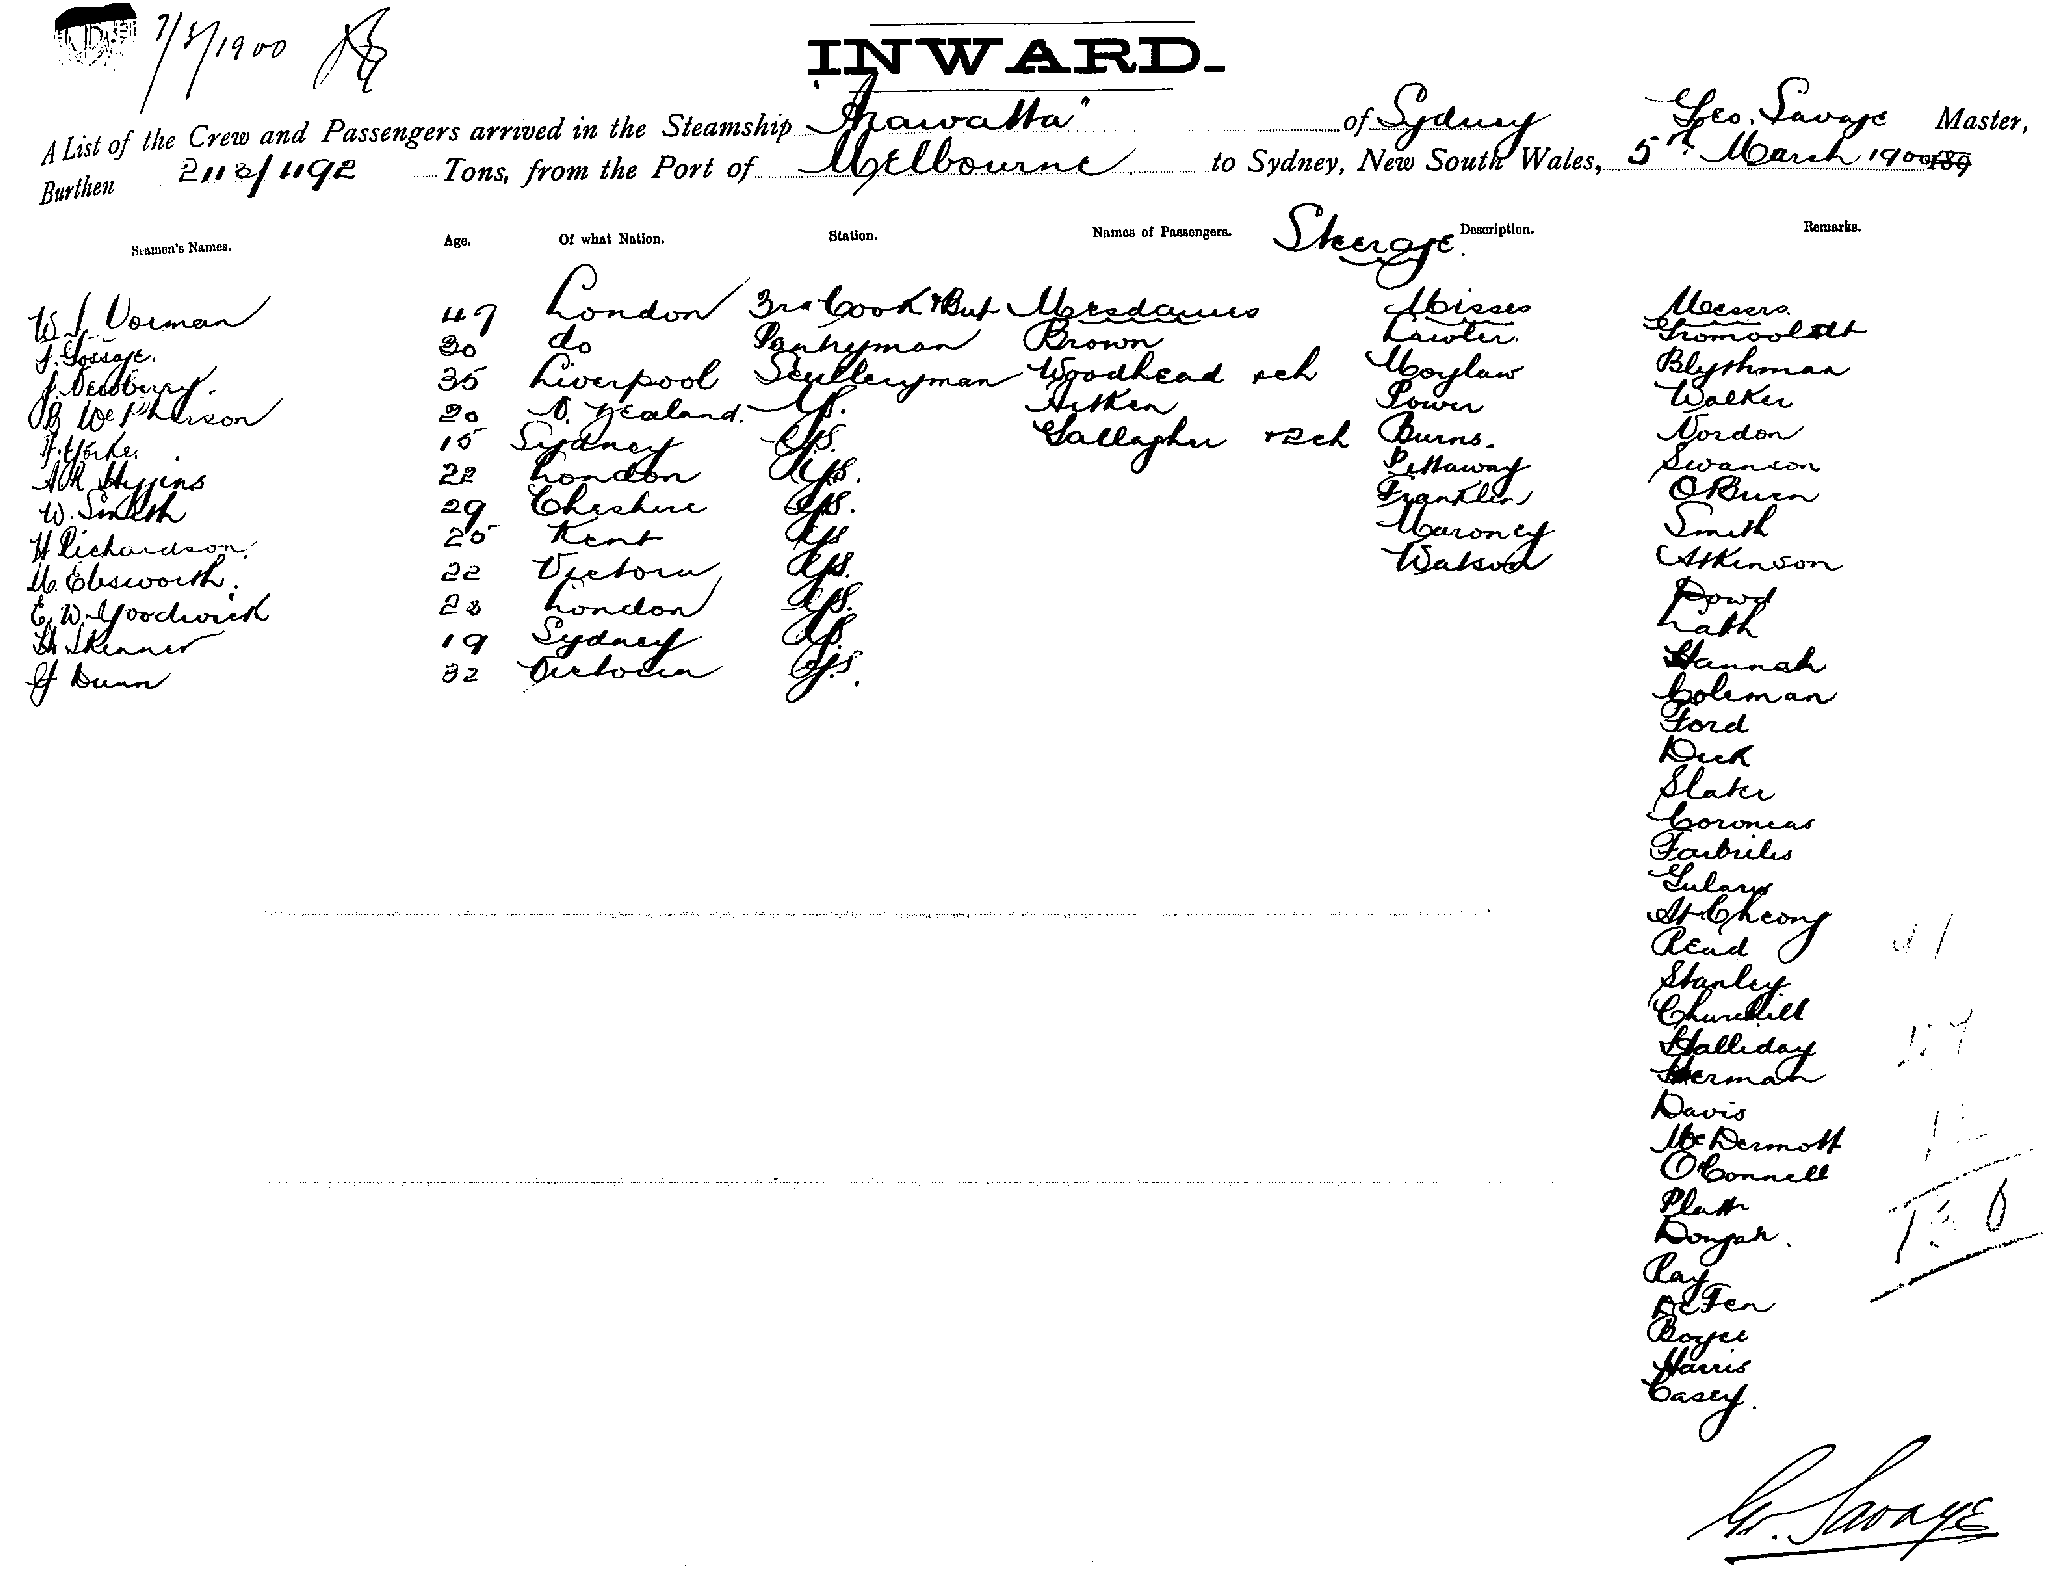 7/3/1900
INWARD.
A List of the Crew and Passengers arrived in the Steamship "Arawatta" of Sydney Geo. Savage Master,
Burthen 2113/1192 Tons, from the Port of Melbourne to Sydney, New South Wales, 5th March 1900 189
Seamen's Names. Age. Of what Nation. Station. Names of Passengers. Steerage Description. Remarks.
W J Dorman 47 London 3rd Cook & But Mesdames Misses Messrs
J. Gossage. 30 do Pantryman Brown Lawler
J. Newberry. 35 Liverpool Sculleryman Woodhead +ch Moylaw Blythman
B McPherson 20 N. Zealand. GS. Aitken Power Walker
F. Yorke. 15 Sydney GS. Gallagher +2ch Burns. Nordon
A R Higgins 22 London GS. Pettaway Swanson
W. Smith 29 Cheshire GS. Franklin O'Burn
H Richardson. 25 Kent GS Maroney Smith
Ebsworth. 22 Victoria GS. Watson Atkinson
E. W. Goodwick 23 London GS. Dowd
H Skenner 19 Sydney GS. Lath
J Dunn 32 Victoria GS. Hannah
Coleman
Ford
Dick
Slater
Coroneas
Gulary
Ah Cheong
Read
Stanley
Churchill
Halliday
Herman
Davis
McDermott
O'Connell
Platt
Ray
Boyce
Harris
Casey.
Geo. Savage